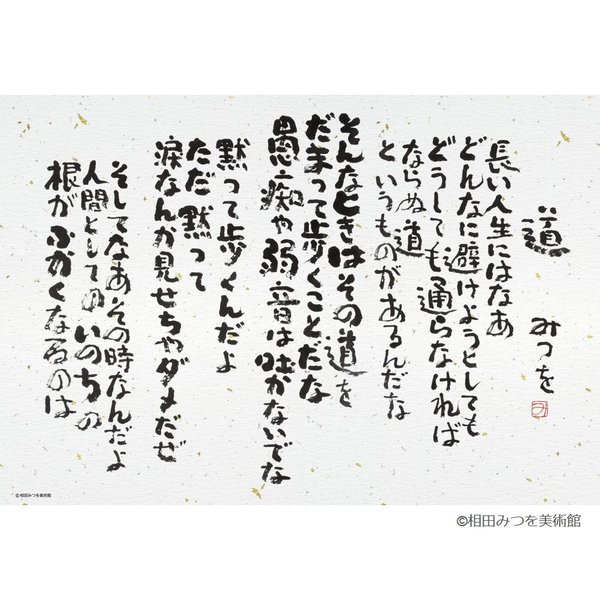 道
みつを
長い人生にはなあ
どんなに避けようとしても
どうしても通らなければ
ならぬ道
というものがあるんだな
そんなときはその道を
だまって歩くことだな
愚痴や弱音は吐かないでな
黙って歩くんだよ
ただ黙って
涙なんか見せちゃダメだぜ
そしてなあその時なんだよ
人間としてのいのちの
根がふかくなるのは
©相田みつを美術館
©相田みつを美術館